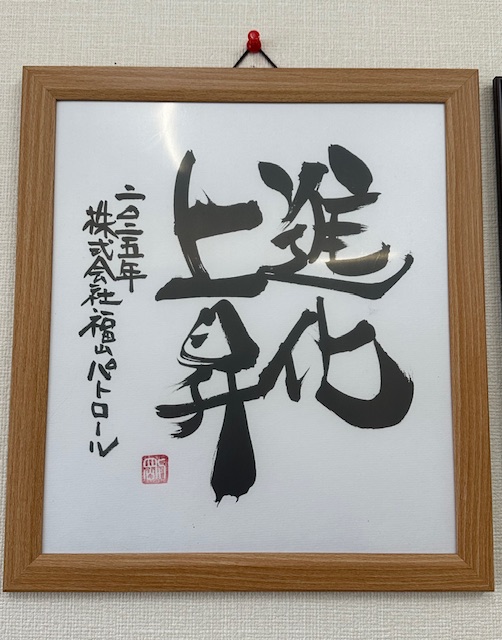 進化
上昇
二〇二五年
株式会社福山パトロール